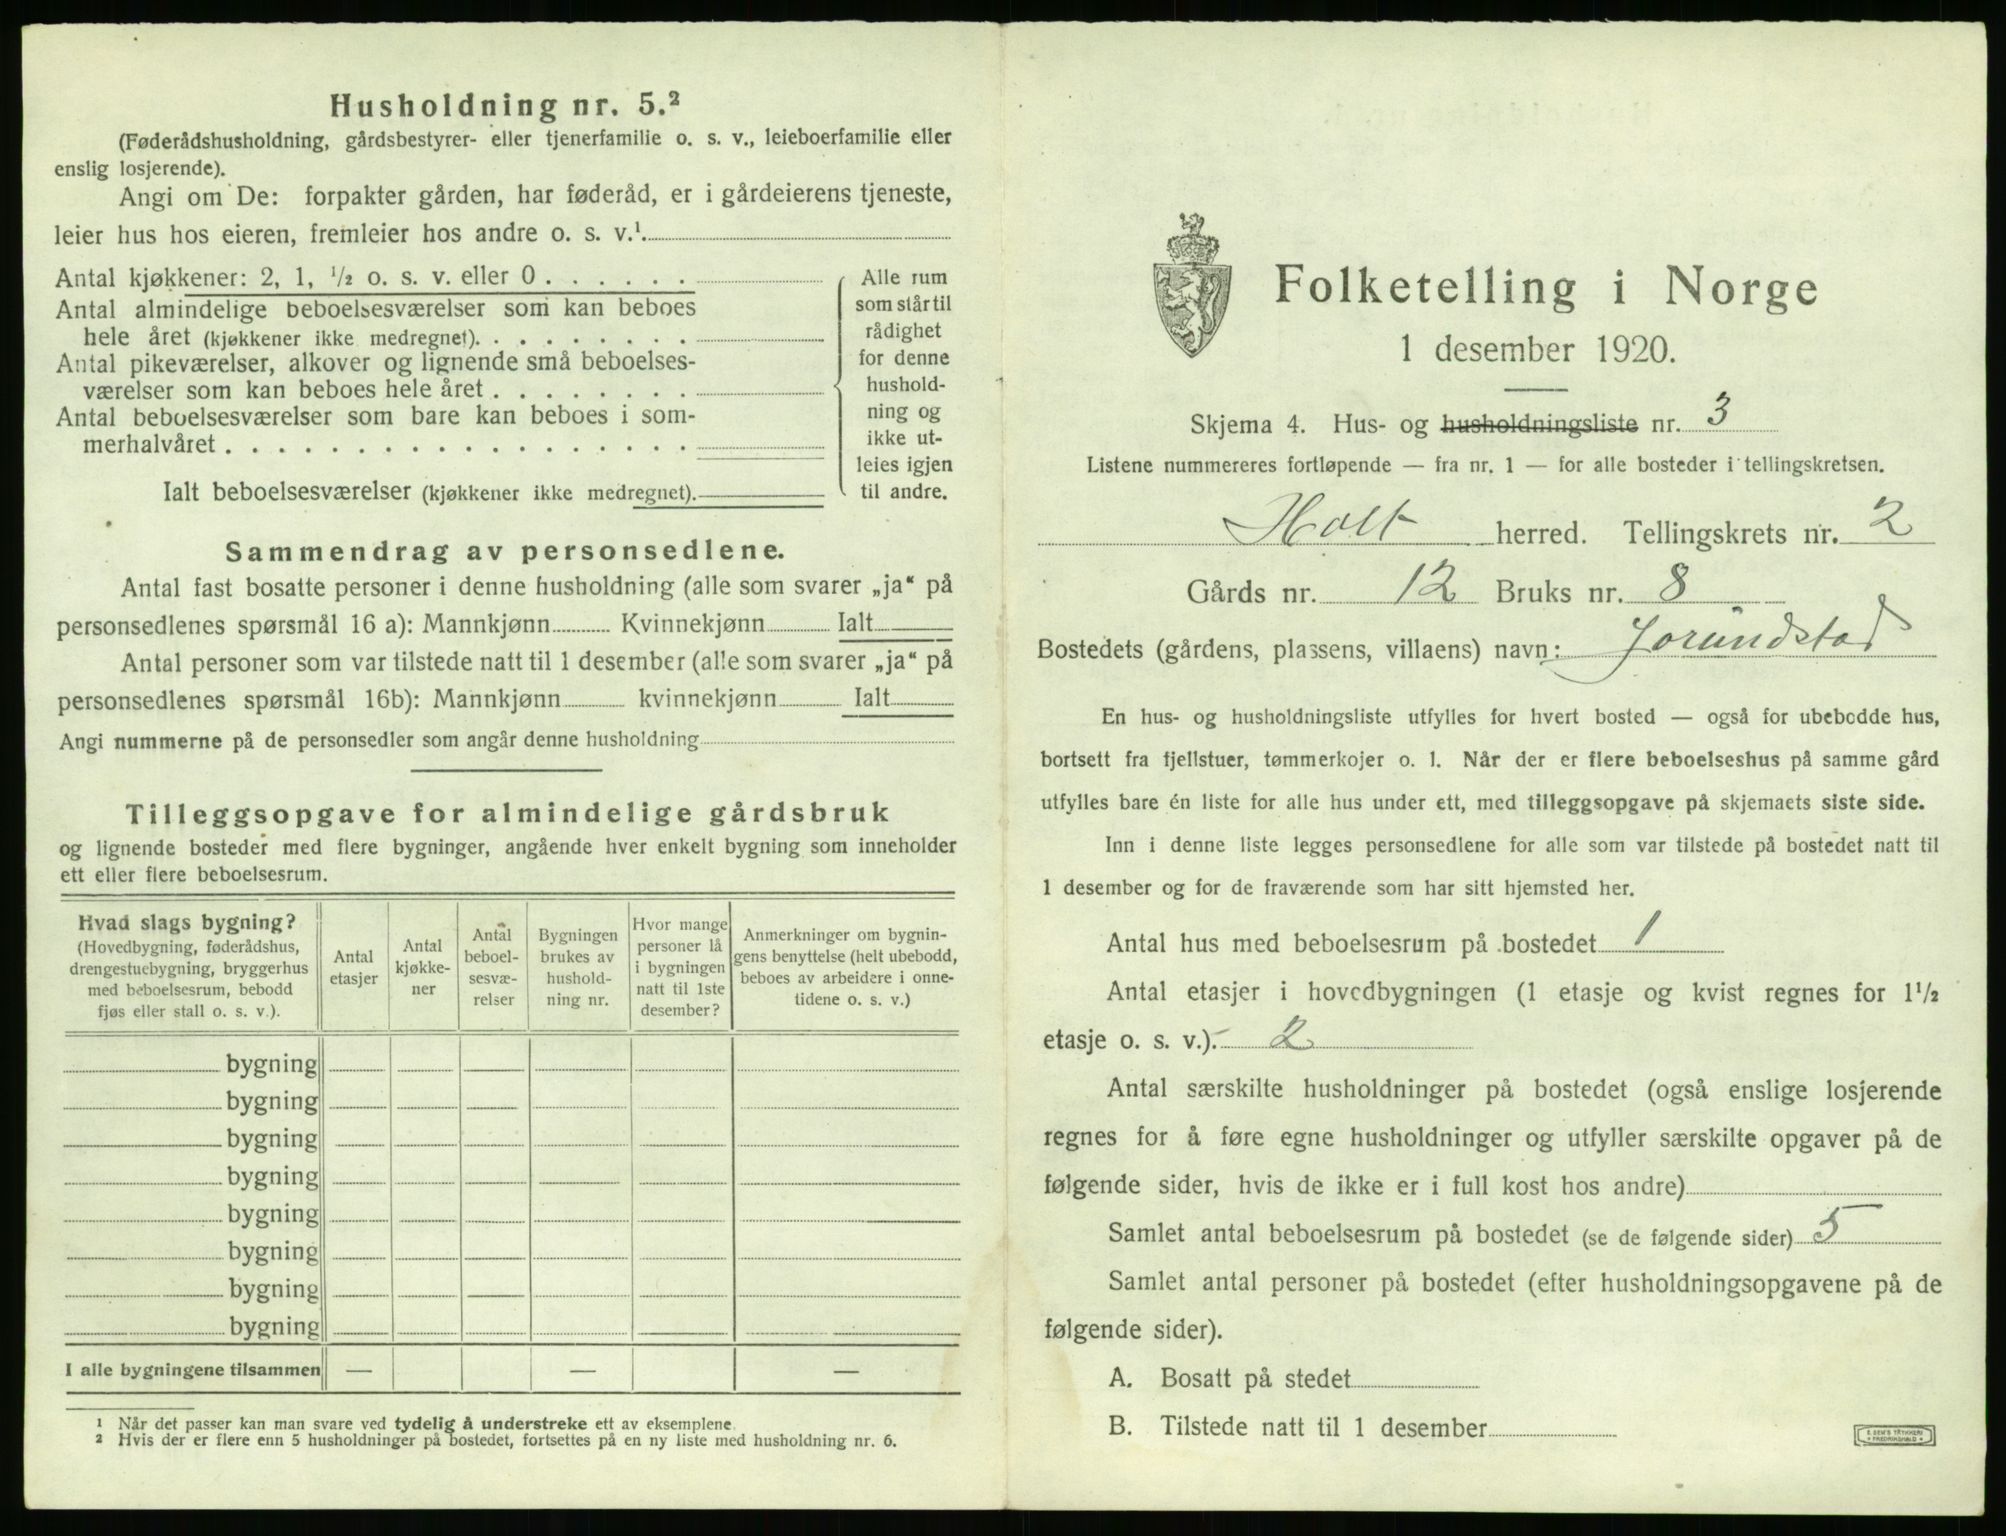 Husholdning nr. 5.²
(Føderådshusholdning, gårdsbestyrer- eller tjenerfamilie o. s. v., leieboerfamilie eller
enslig losjerende).
Angi om De: forpakter gården, har føderåd, er i gårdeierens tjeneste,
leier hus hos eieren, fremleier hos andre o. s. v.¹
Antal kjøkkener: 2, 1, ½ o. s. v. eller 0
Antal almindelige beboelsesværelser som kan beboes
hele året (kjøkkener ikke medregnet)
Antal pikeværelser, alkover og lignende små beboelses-
værelser som kan beboes hele året
Antal beboelsesværelser som bare kan beboes i som-
merhalvåret
Ialt beboelsesværelser (kjøkkener ikke medregnet)
Alle rum
som står til
rådighet
for denne
hushold-
ning og
ikke ut-
leies igjen
til andre.
Sammendrag av personsedlene.
Antal fast bosatte personer i denne husholdning (alle som svarer „ja“ på
personsedlenes spørsmål 16 a): Mannkjønn Kvinnekjønn Ialt
Antal personer som var tilstede natt til 1 desember (alle som svarer „ja“ på
personsedlenes spørsmål 16b): Mannkjønn kvinnekjønn Ialt
Angi nummerne på de personsedler som angår denne husholdning
Tilleggsopgave for almindelige gårdsbruk
og lignende bosteder med flere bygninger, angående hver enkelt bygning som inneholder
ett eller flere beboelsesrum.
Hvad slags bygning?
(Hovedbygning, føderådshus,
drengestuebygning, bryggerhus
med beboelsesrum, bebodd
fjøs eller stall o. s. v.).
Antal
etasjer
Antal
kjøkke-
ner
Antal
beboel-
sesvæ-
relser
Bygningen
brukes av
hushold-
ning nr.
Hvor mange
personer lå
i bygningen
natt til 1ste
desember?
Anmerkninger om bygnin-
gens benyttelse (helt ubebodd,
beboes av arbeidere i onne-
tidene o. s. v.)
bygning
bygning
bygning
bygning
bygning
bygning
bygning
bygning
I alle bygningene tilsammen — — —
¹ Når det passer kan man svare ved tydelig å understreke ett av eksemplene.
² Hvis der er flere enn 5 husholdninger på bostedet, fortsettes på en ny liste med husholdning nr. 6.
Folketelling i Norge
1 desember 1920.
Skjema 4. Hus- og husholdningsliste nr. 3
Listene nummereres fortløpende — fra nr. 1 — for alle bosteder i tellingskretsen.
Holt herred. Tellingskrets nr. 2
Gårds nr. 12 Bruks nr. 8
Bostedets (gårdens, plassens, villaens) navn: Jorundstad
En hus- og husholdningsliste utfylles for hvert bosted — også for ubebodde hus,
bortsett fra fjellstuer, tømmerkojer o. l. Når der er flere beboelseshus på samme gård
utfylles bare én liste for alle hus under ett, med tilleggsopgave på skjemaets siste side.
Inn i denne liste legges personsedlene for alle som var tilstede på bostedet natt til
1 desember og for de fraværende som har sitt hjemsted her.
Antal hus med beboelsesrum på bostedet 1
Antal etasjer i hovedbygningen (1 etasje og kvist regnes for 1½
etasje o. s. v.). 2
Antal særskilte husholdninger på bostedet (også enslige losjerende
regnes for å føre egne husholdninger og utfyller særskilte opgaver på de
følgende sider, hvis de ikke er i full kost hos andre)
Samlet antal beboelsesrum på bostedet (se de følgende sider) 5
Samlet antal personer på bostedet (efter husholdningsopgavene på de
følgende sider).
A. Bosatt på stedet
B. Tilstede natt til 1 desember